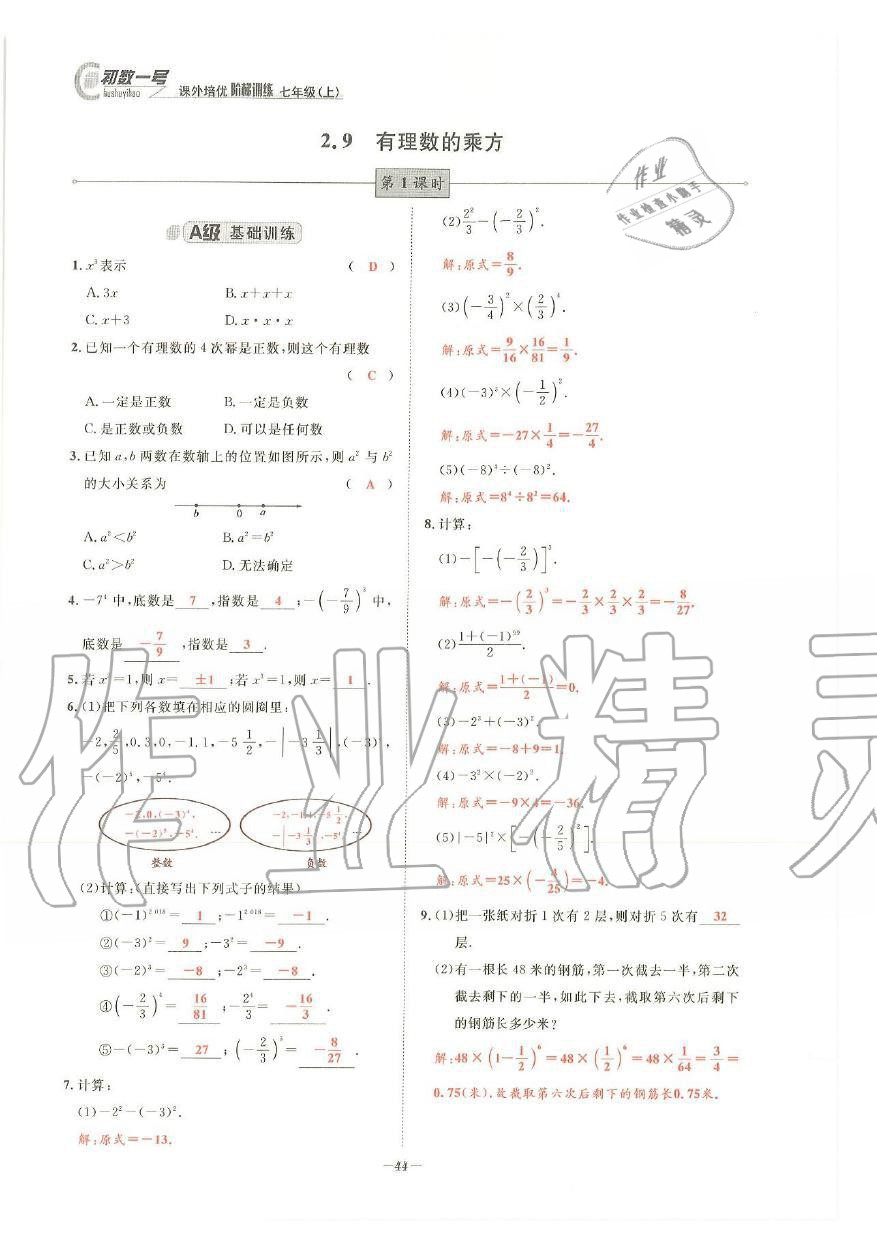 初数一号
Chushuyihao
课外培优 阶梯训练 七年级(上)
2.9 有理数的乘方
第1课时
A级 基础训练
1. x³表示 ( D )
A. 3x B. x+x+x
C. x+3 D. x·x·x
2. 已知一个有理数的4次幂是正数,则这个有理数
( C )
A. 一定是正数 B. 一定是负数
C. 是正数或负数 D. 可以是任何数
3. 已知a,b两数在数轴上的位置如图所示,则a²与b²
的大小关系为 ( A )
b 0 a
A. a²<b² B. a²=b²
C. a²>b² D. 无法确定
4. -7⁴中,底数是 7 ,指数是 4 ;-(-7/9)³中,
底数是 -7/9 ,指数是 3 .
5. 若x²=1,则x= ±1 ;若x³=1,则x= 1 .
6. (1)把下列各数填在相应的圆圈里:
-2,2/5,0.3,0,-1.1,-5 1/2,-|-3 1/3|,(-3)⁴,
-(-2)⁴,-5⁴.
-2,0,(-3)⁴, -2,-1.1,-5 1/2,
-(-2)⁴,-5⁴, … -|-3 1/3|,-5⁴, …
整数 负数
(2)计算:(直接写出下列式子的结果)
①(-1)²⁰¹⁸= 1 ;-1²⁰¹⁸= -1 .
②(-3)²= 9 ;-3²= -9 .
③(-2)³= -8 ;-2³= -8 .
④(-2/3)⁴= 16/81 ;-2⁴/3= -16/3 .
⑤-(-3)³= 27 ;(-2/3)³= -8/27 .
7. 计算:
(1)-2²-(-3)².
解:原式=-13.
(2)2²/3-(-2/3)².
解:原式=8/9.
(3)(-3/4)²×(2/3)⁴.
解:原式=9/16×16/81=1/9.
(4)(-3)³×(-1/2)².
解:原式=-27×1/4=-27/4.
(5)(-8)⁴÷(-8)².
解:原式=8⁴÷8²=64.
8. 计算:
(1)-[-(-2/3)]³.
解:原式=-(2/3)³=-2/3×2/3×2/3=-8/27.
(2)1+(-1)⁹⁹/2.
解:原式=1+(-1)/2=0.
(3)-2³+(-3)².
解:原式=-8+9=1.
(4)-3²×(-2)².
解:原式=-9×4=-36.
(5)|-5|²×[-(-2/5)²].
解:原式=25×(-4/25)=-4.
9. (1)把一张纸对折1次有2层,则对折5次有 32
层.
(2)有一根长48米的钢筋,第一次截去一半,第二次
截去剩下的一半,如此下去,截取第六次后剩下
的钢筋长多少米?
解:48×(1-1/2)⁶=48×(1/2)⁶=48×1/64=3/4=
0.75(米).故截取第六次后剩下的钢筋长0.75米.
—44—
作业
作业检查小助手
精灵
作业精灵